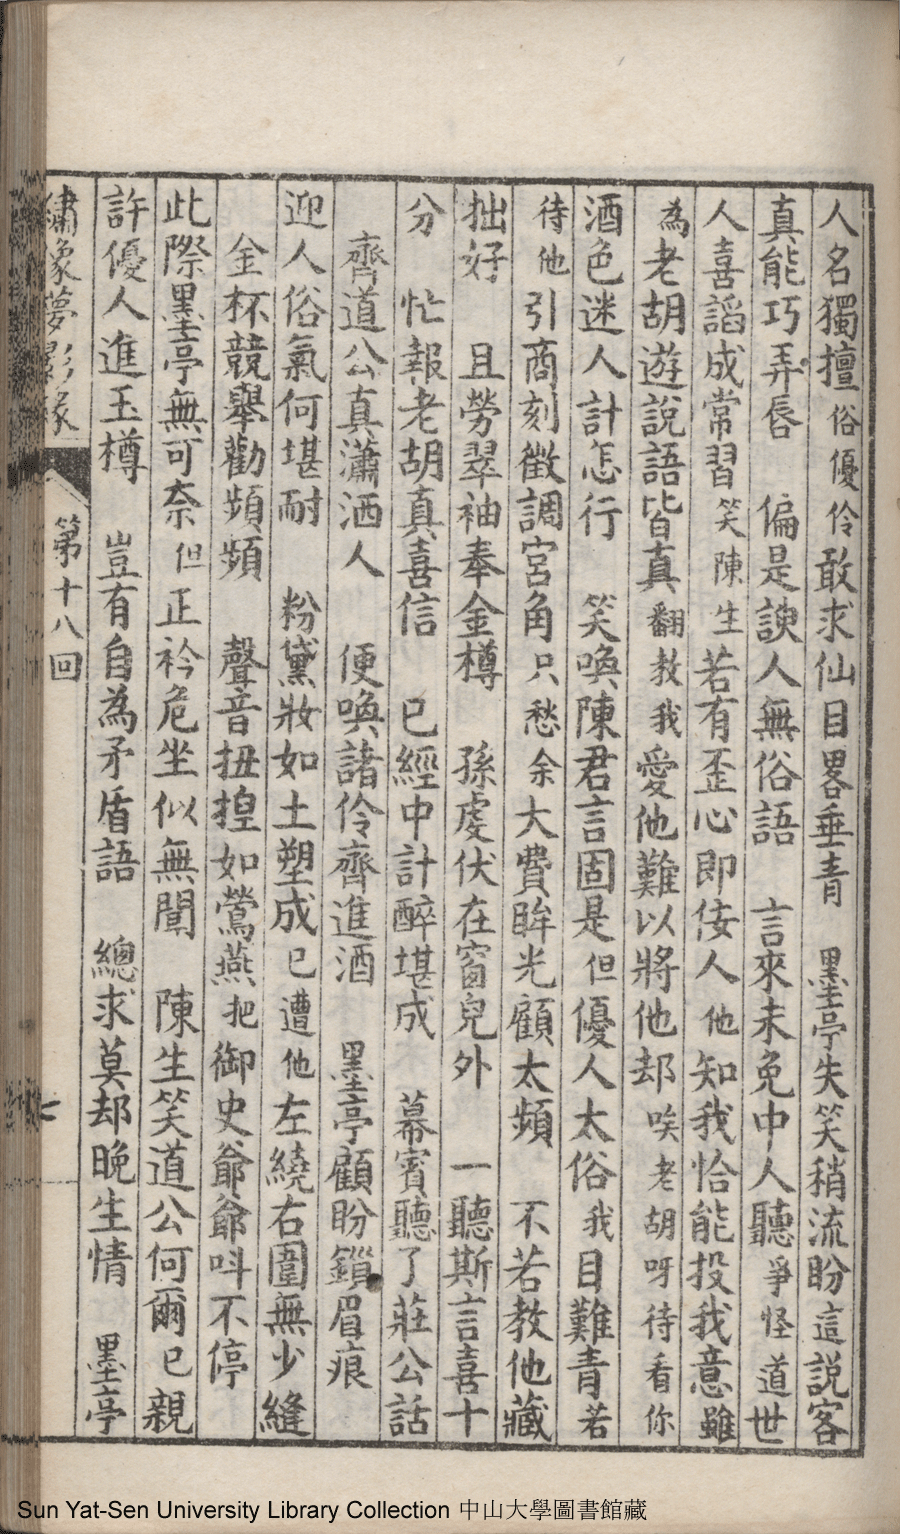 人名獨擅俗優伶敢求仙目畧垂青　墨亭失笑稍流盼這説客
真能巧弄唇　偏是諛人無俗語　言來未免中人聽爭怪道世
人喜謟成常習笑陳生若有歪心即侫人他知我恰能投我意雖
為老胡遊説語皆真翻教我愛他難以將他却唉老胡呀待看你
酒色迷人計怎行　笑喚陳君言固是但優人太俗我目難青若
待他引商刻徵調宮角只愁余大費眸光顧太頻　不若教他藏
拙好　且勞翠袖奉金樽　孫虔伏在窗皃外　一聽斯言喜十
分　忙報老胡真喜信　已經中計醉堪成　幕賓聽了莊公話
齊道公真瀟洒人　便喚諸伶齊進酒　墨亭顧盼鎖眉痕
迎人俗氣何堪耐　粉黛妝如土塑成已遭他左繞右圍無少縫
金杯競舉勸頻頻　聲音扭揑如鶯燕把御史爺爺呌不停
此際墨亭無可奈但正衿危坐似無聞　陳生笑道公何爾已親
許優人進玉樽　豈有自為矛盾語　總求莫却晚生情　墨亭
繡像夢影緣　第十八回　七
Sun Yat-Sen University Library Collection 中山大學圖書館藏